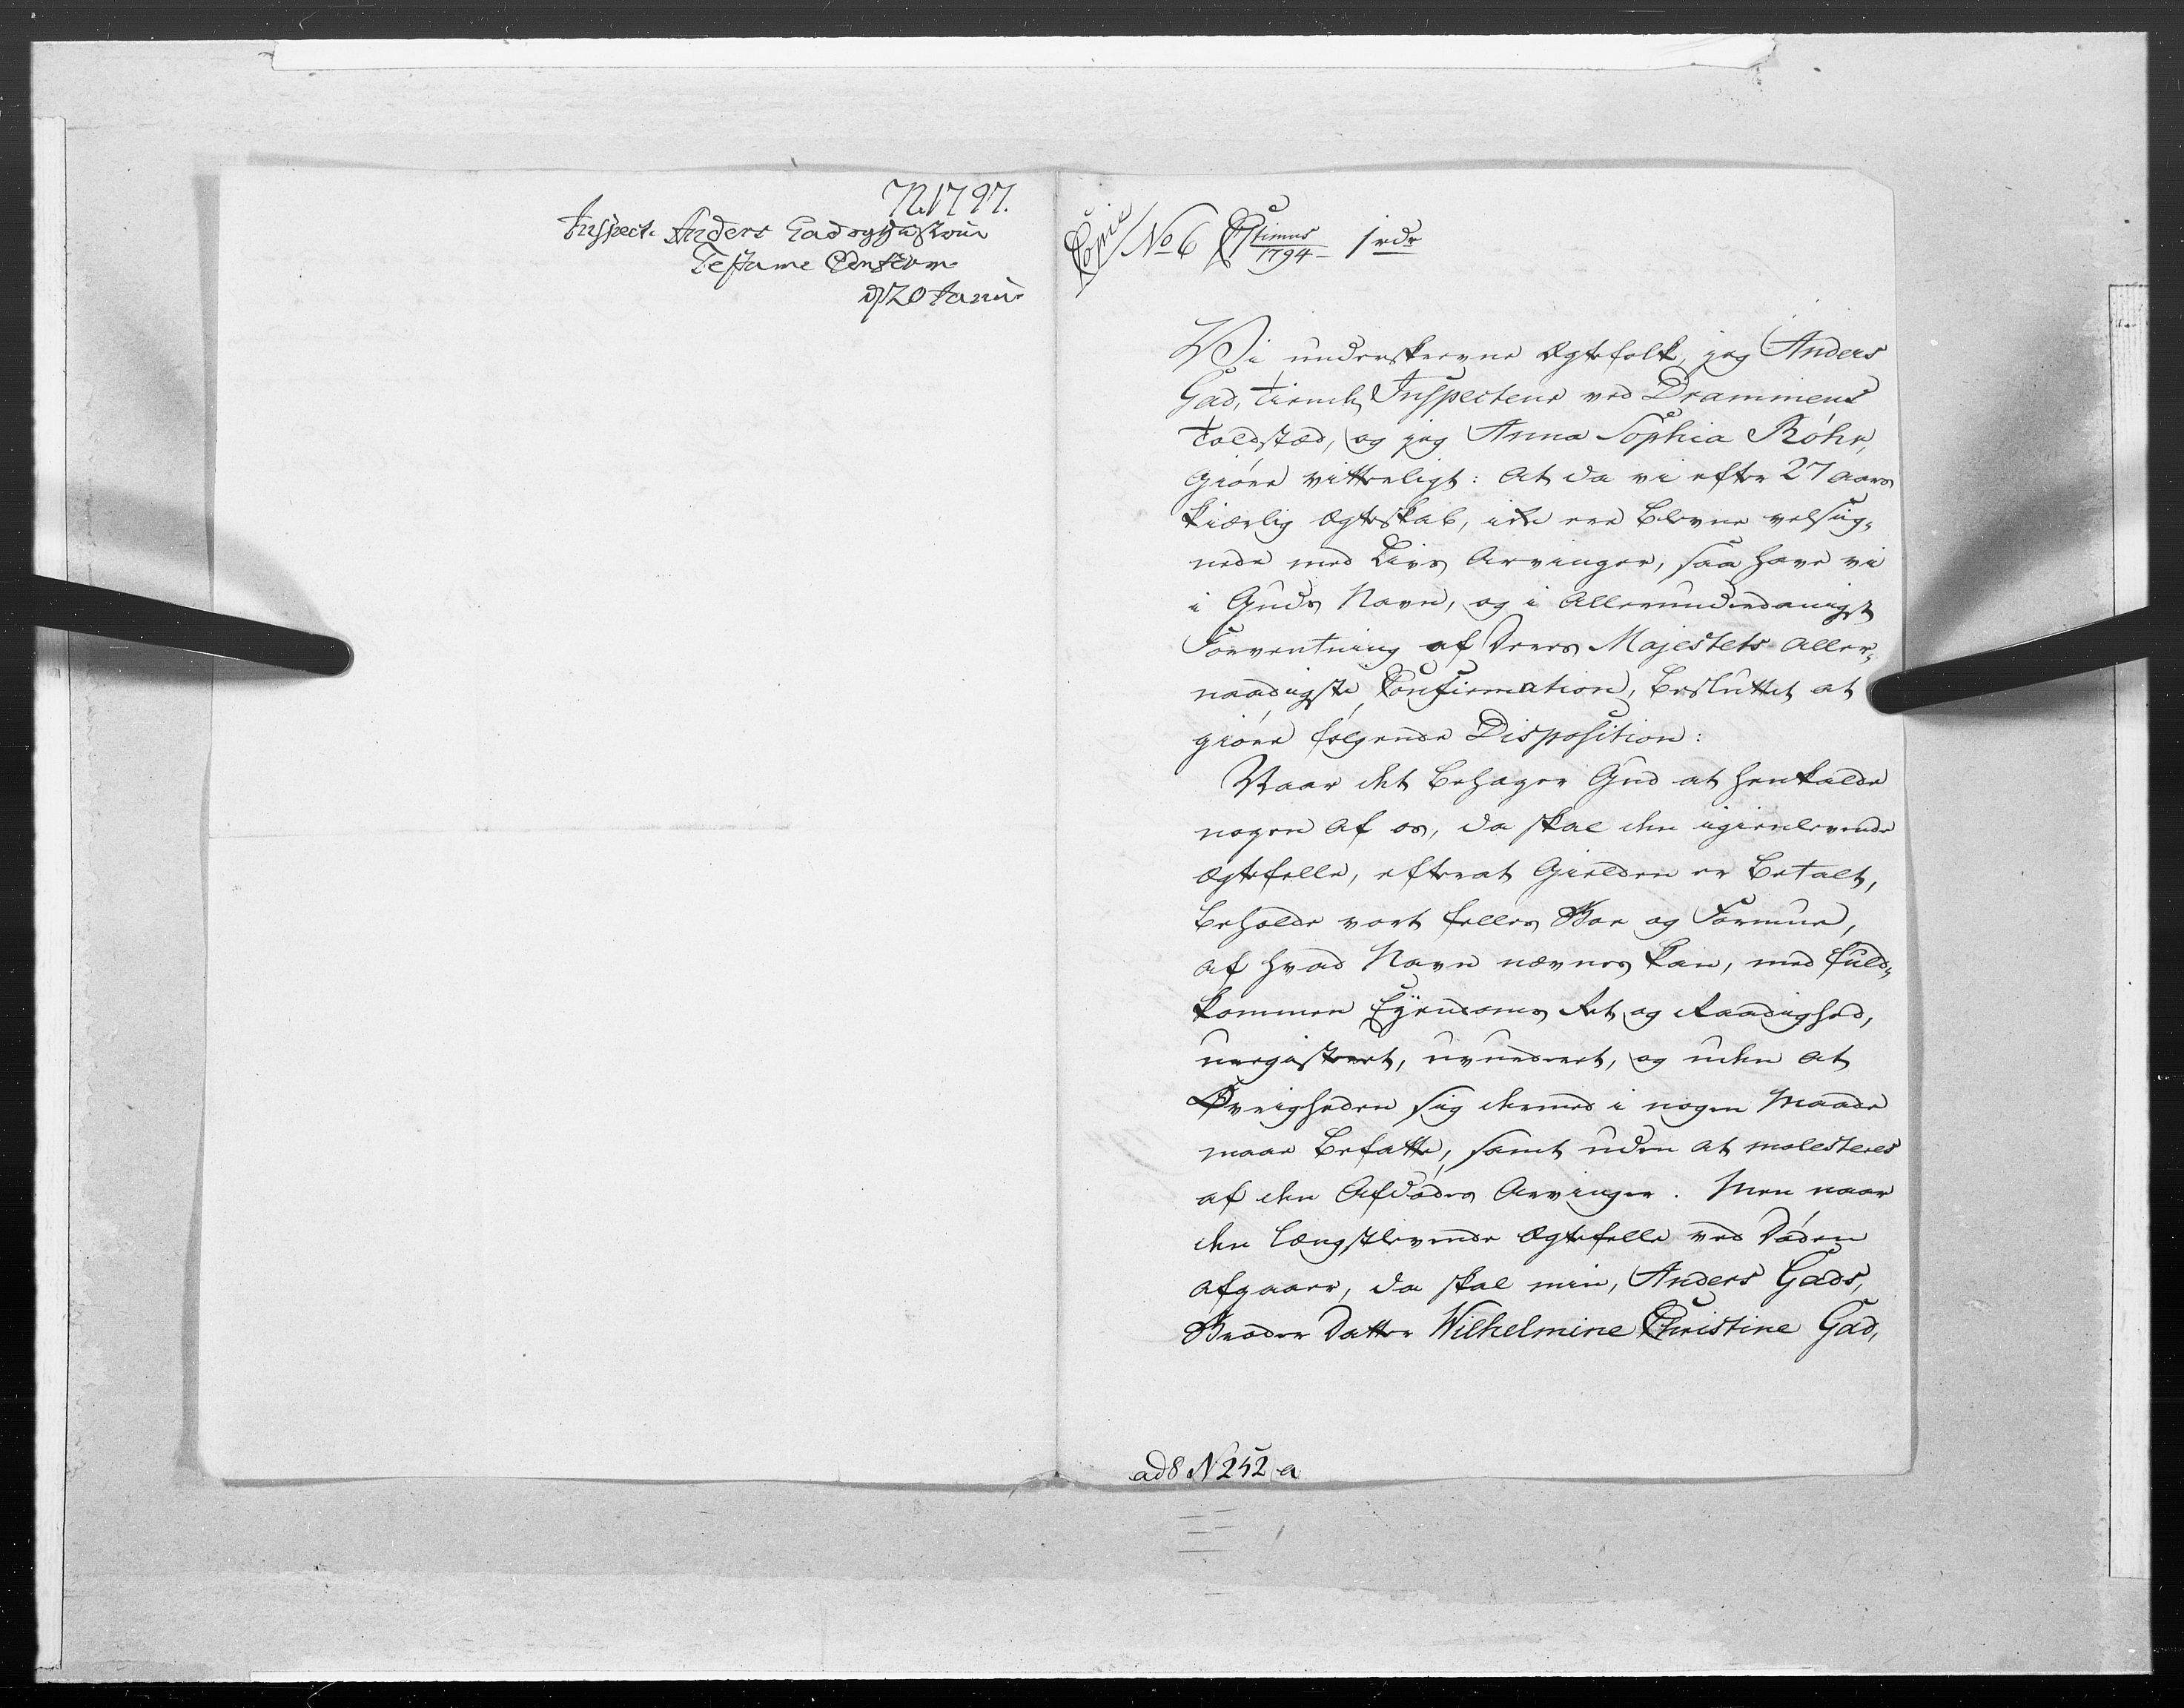 N. 1797.
Inspect. Anders Gad og Hustrue
Testame Confirm
d. 20 Janu
Copie No 6 timus 1794 1 rdr
Wi underskrevne Ægtefolk, jeg Anders
Gad, Inspecteur ved Drammens
Toldsted, og jeg Anna Sophia Röhr,
giøre vitterligt: At da vi efter 27 aars
kiærlig Ægteskab, icke ere blevne velsig-
nede med Livs Arvinger, saa have vi
i Guds Navn, og i Allerunderdanigst
Forventning af Deres Majestets Aller-
naadigste Confirmation, besluttet at
giöre følgende Disposition:
Naar det behager Gud at henkalde
nogen af os, da skal den igienlevende
Ægtefelle, efterat Gielden er betalt,
beholde vort felles Boe og Formue,
af hvad Navn nævnes kan, med fuld-
kommen Eyendoms Ret og Raadighed,
uregistrert, uvurdert, og uden at
Øvrigheden sig dermed i nogen Maade
maae befatte, samt uden at molesteres
af den Afdødes Arvinger. Men naar
den længstlevende Ægtefelle ved Døden
afgaaer, da skal min, Anders Gads,
Broder Datter Wilhelmine Christine Gad,
ad 8 N 252 a